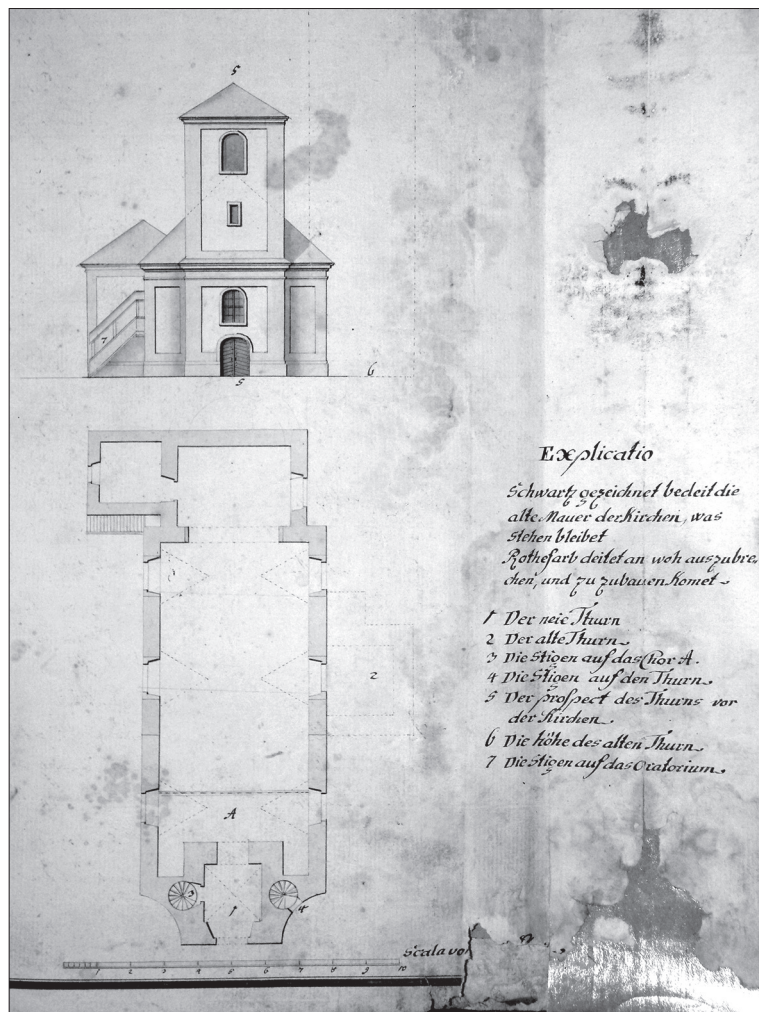 5
7
5
6
Explicatio
Schwartz gezeichnet bedeit die
alte Mauer der Kirchen, was
stehen bleibet
Rothefarb deitet an woh auszubre-
chen, und zu zubauen Komet
1 Der neie Thurn
2 Der alte Thurn
3 Die Stigen auf das Chor A.
4 Die Stigen auf den Thurn
5 Der prospect des Thurns vor
der Kirchen
6 Die höhe des alten Thurn
7 Die Stigen auf das Oratorium
3
2
A
3
4
1
Scala vo
1 2 3 4 5 6 7 8 9 10